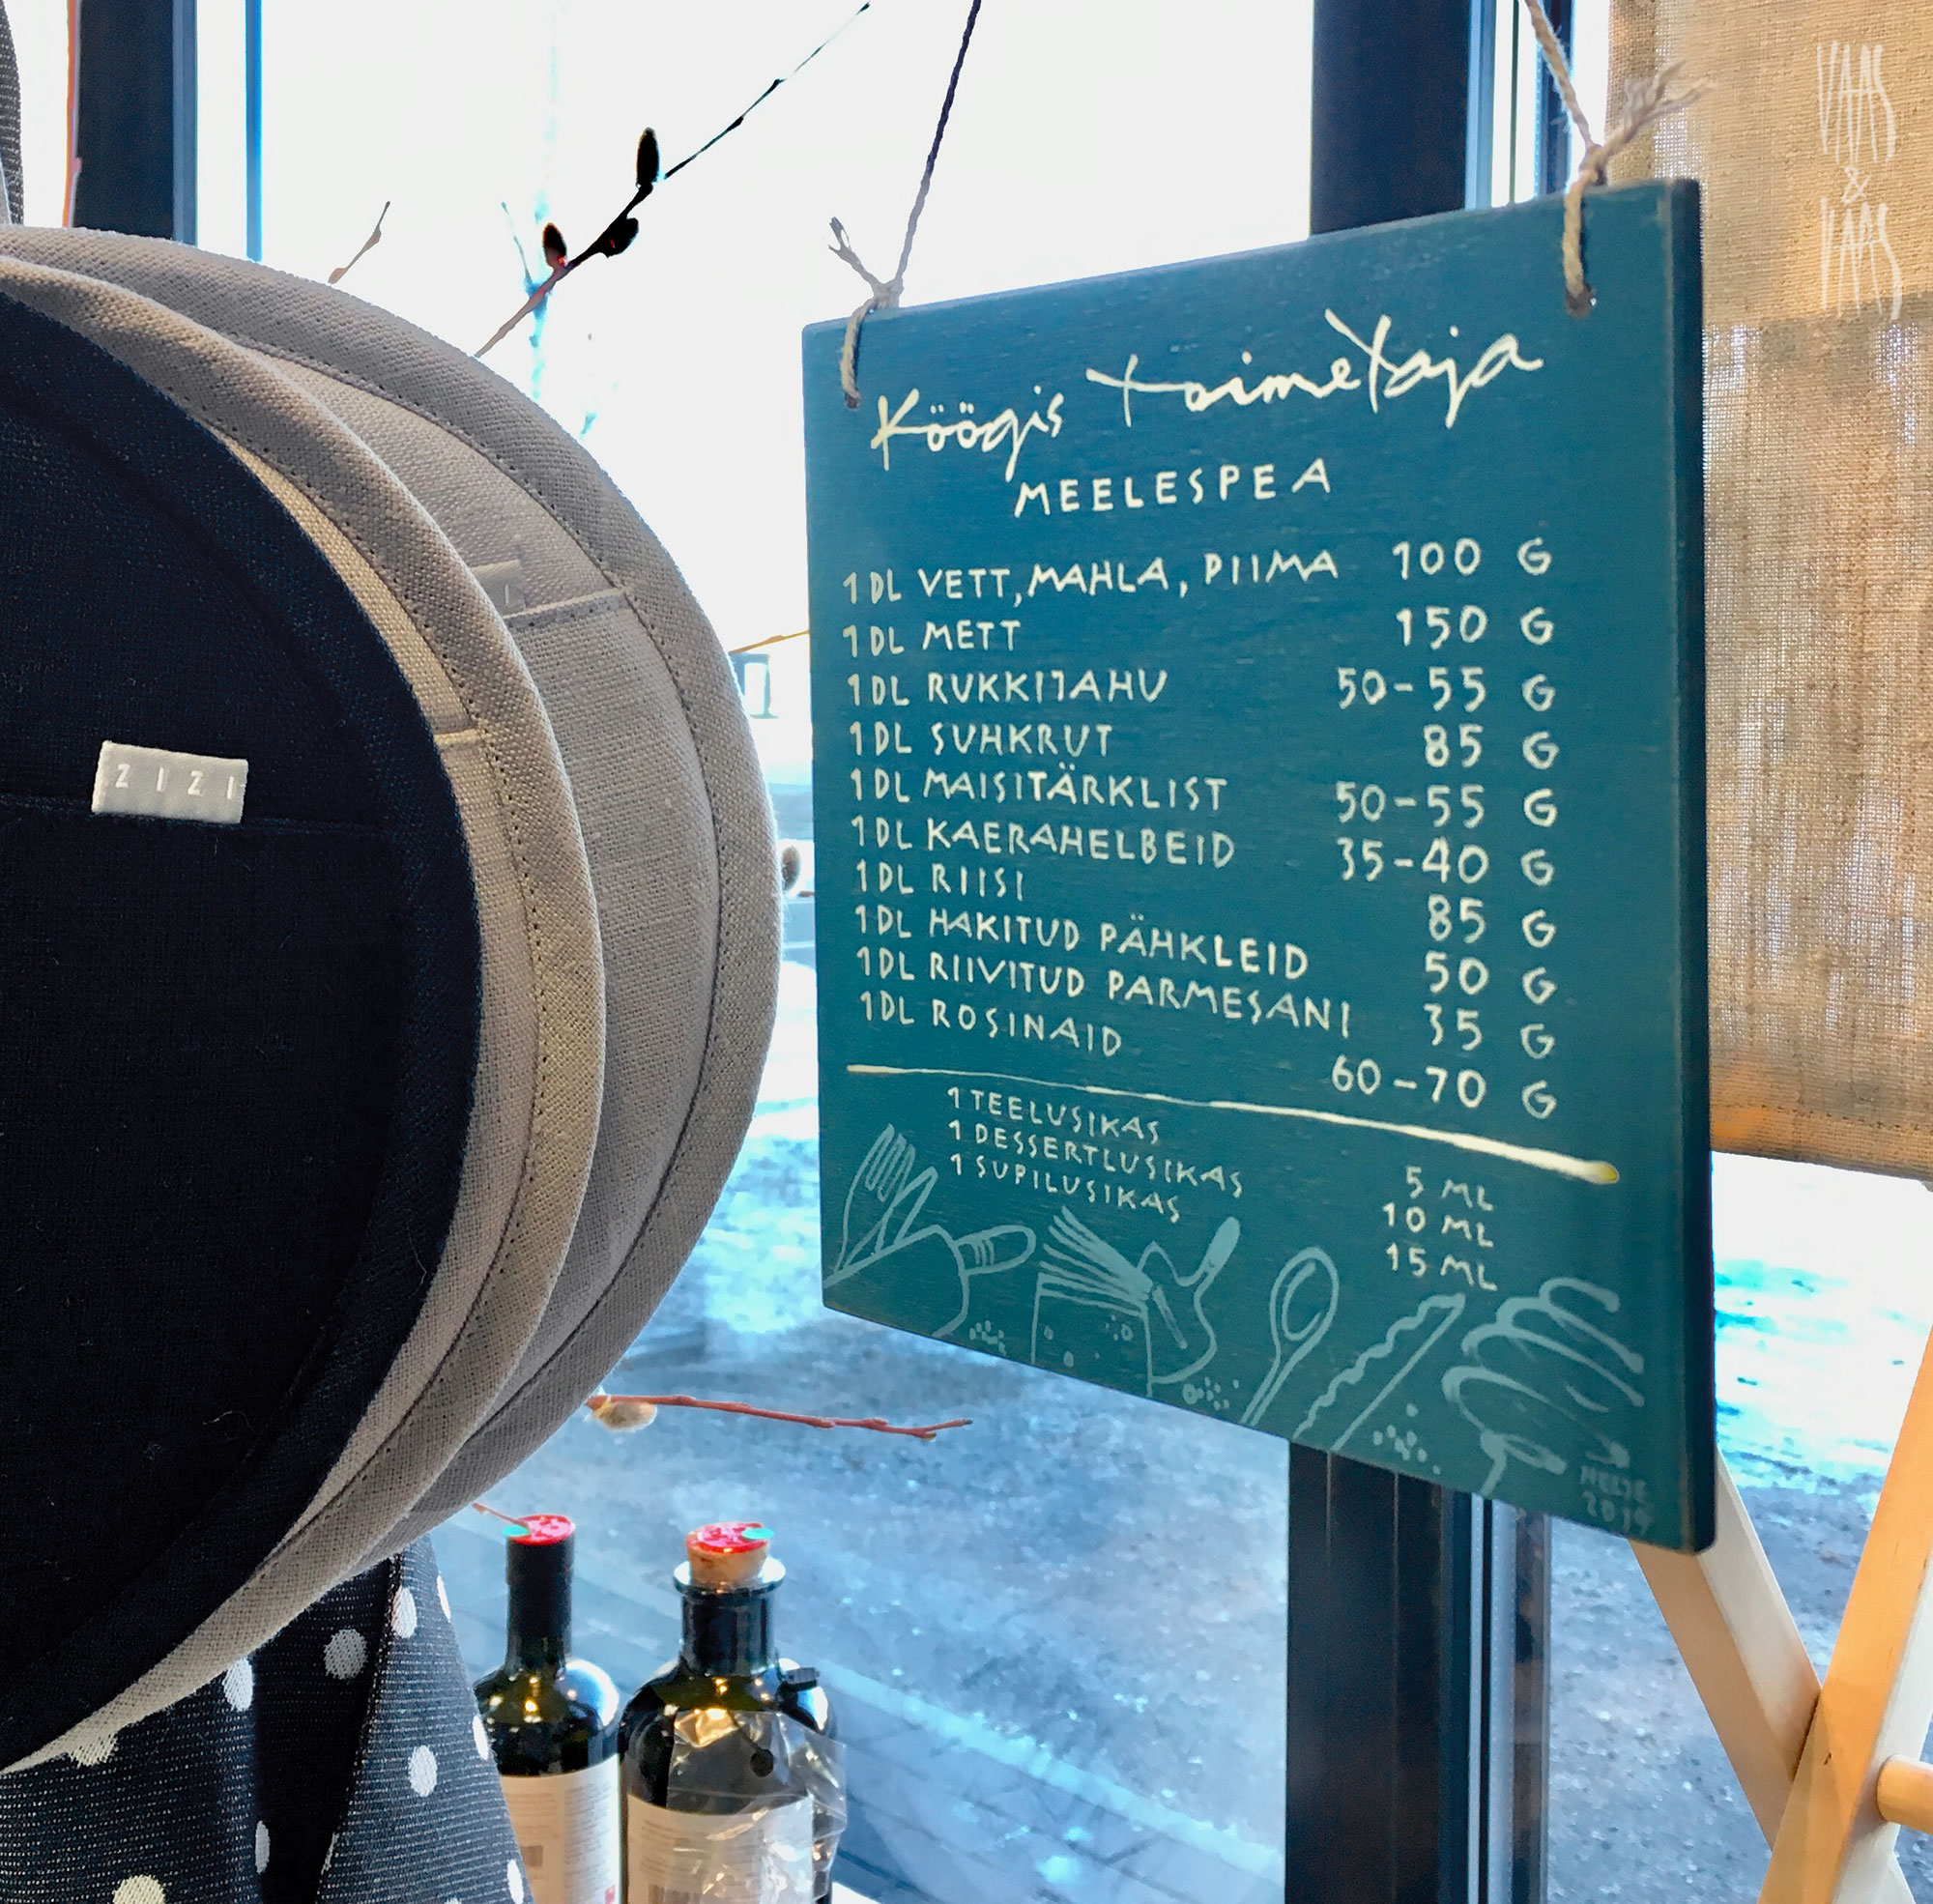 VAAS
&
VAAS
Köögis toimetaja
MEELESPEA
1 DL VETT, MAHLA, PIIMA 100 G
1 DL METT 150 G
1 DL RUKKIJAHU 50-55 G
1 DL SUHKRUT 85 G
1 DL MAISITÄRKLIST 50-55 G
1 DL KAERAHELBEID 35-40 G
1 DL RIISI 85 G
1 DL HAKITUD PÄHKLEID 50 G
1 DL RIIVITUD PARMESANI 35 G
1 DL ROSINAID 60-70 G
1 TEELUSIKAS 5 ML
1 DESSERTLUSIKAS 10 ML
1 SUPILUSIKAS 15 ML
2019
ZIZI